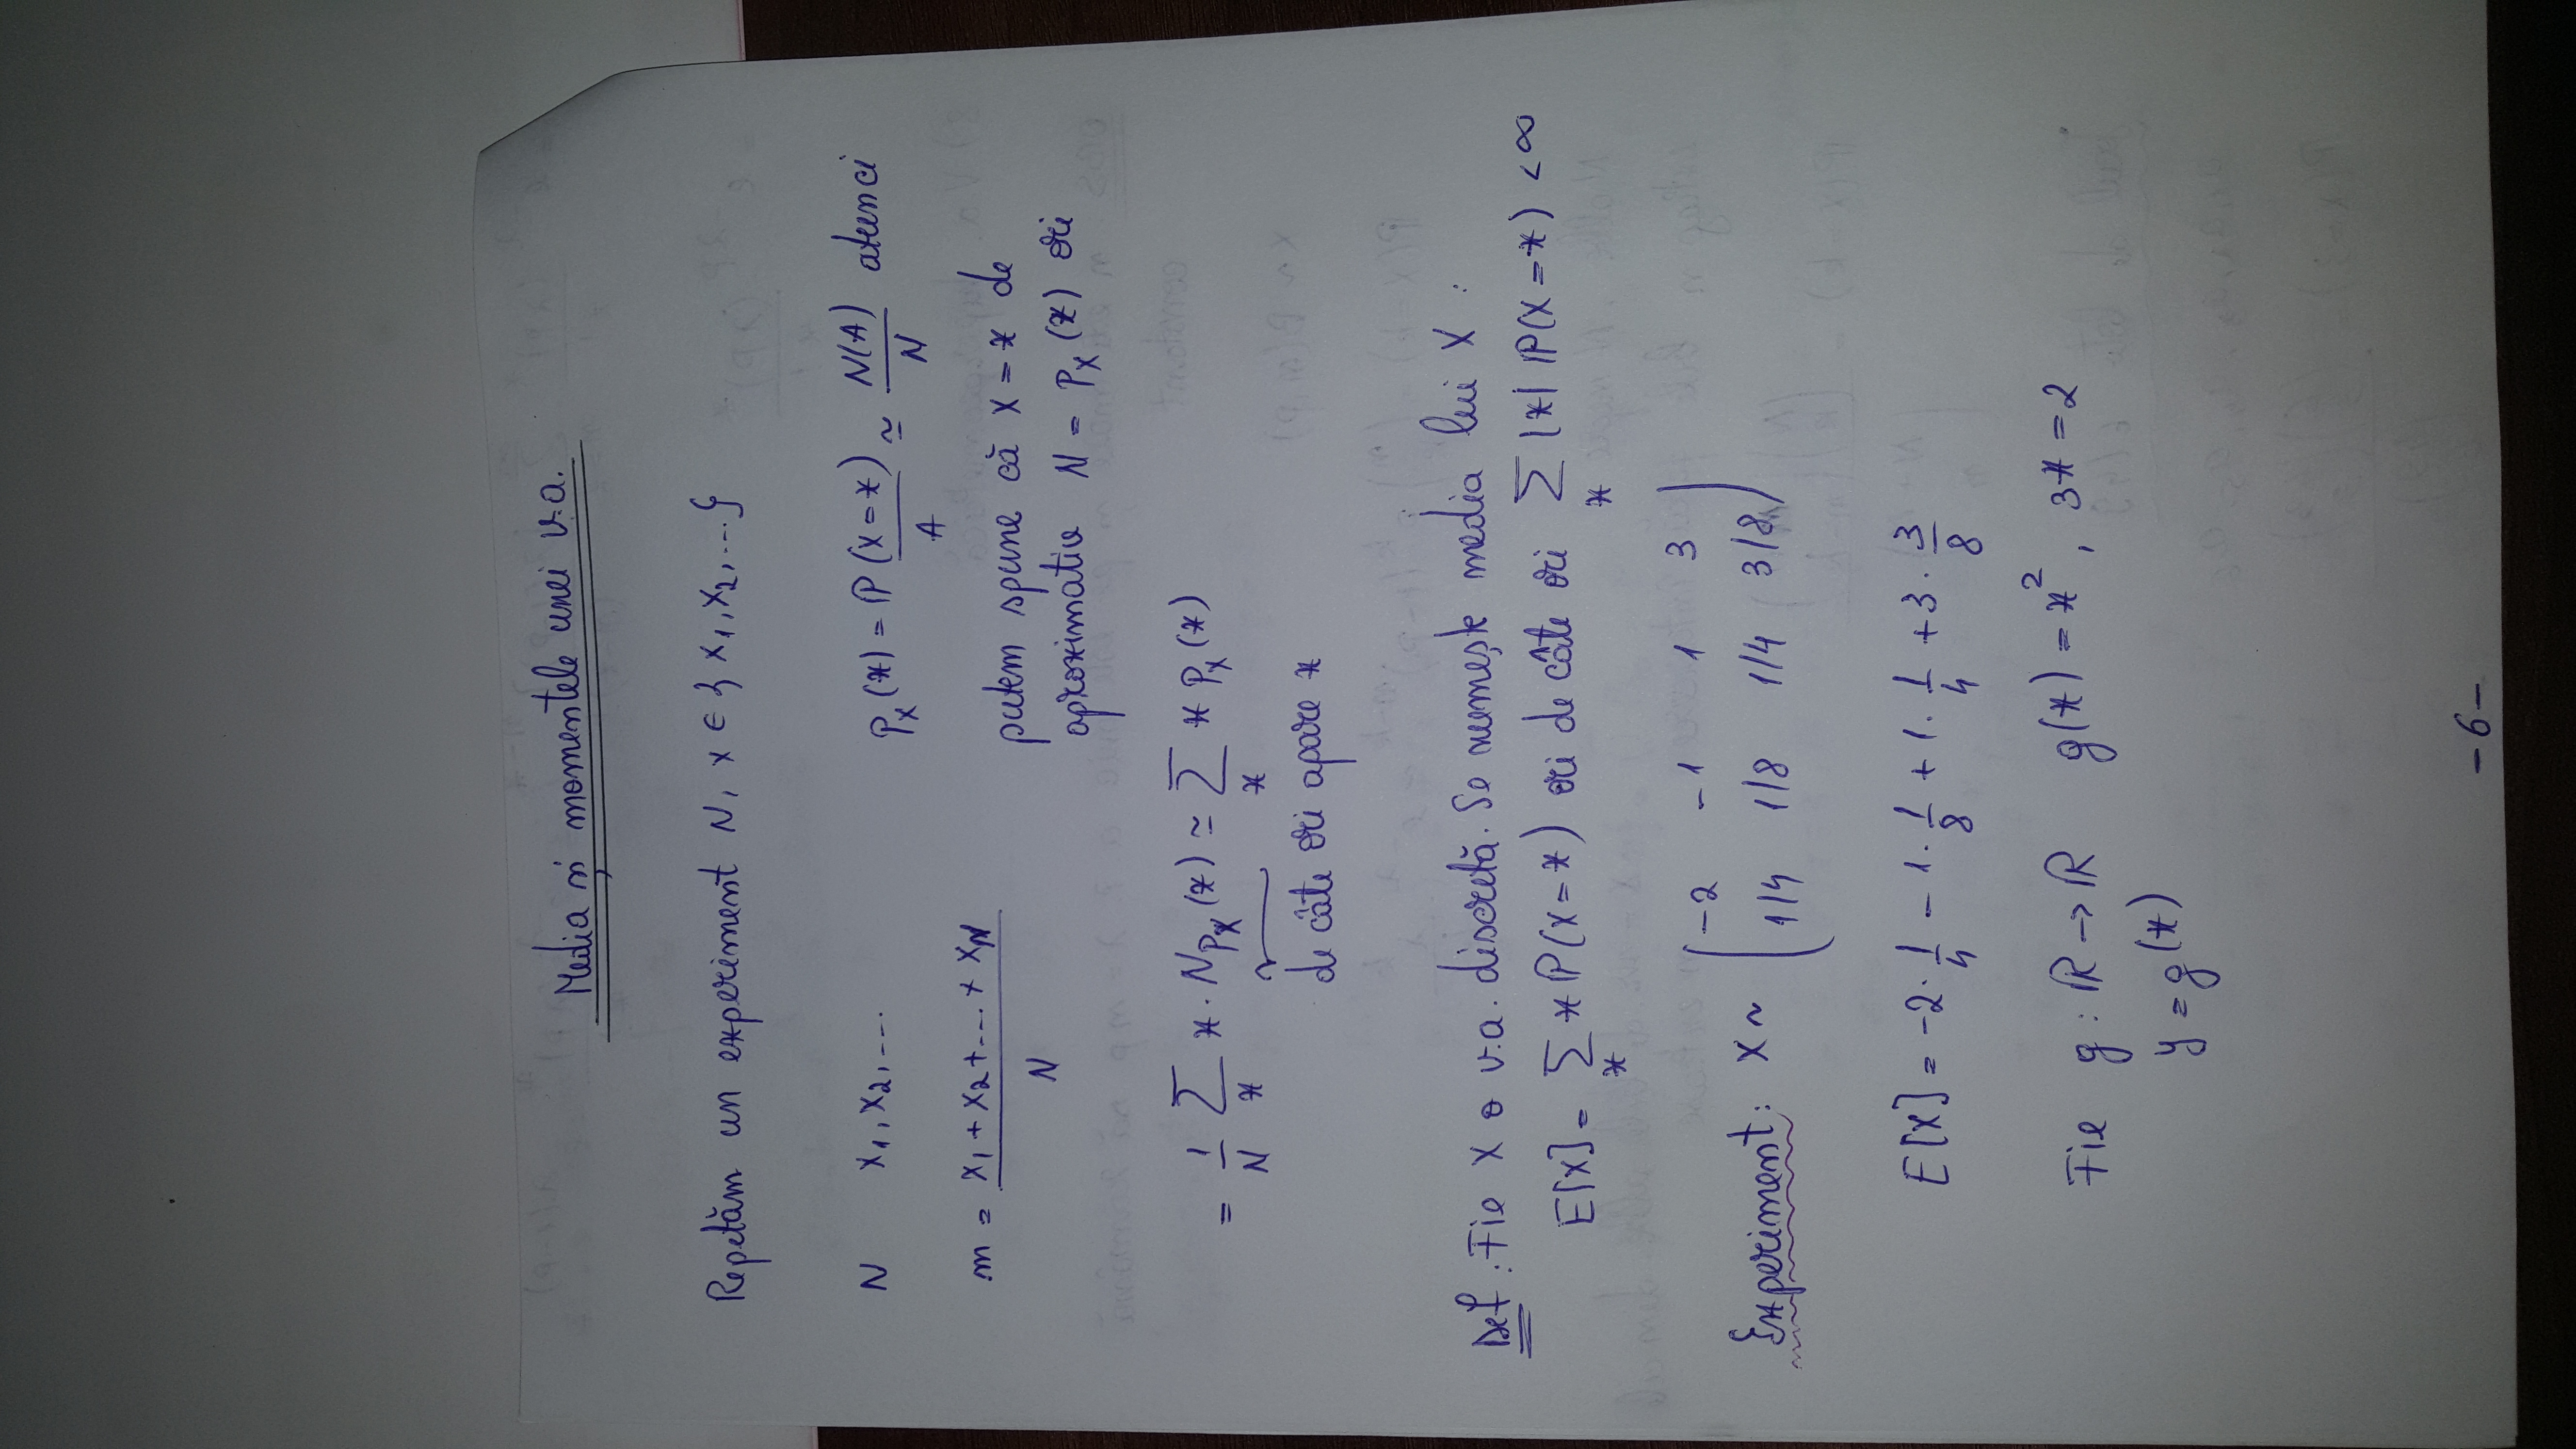 Media și momentele unei v.a.
Repetăm un experiment N, x ∈ { x₁, x₂, ... }
N x₁, x₂, ...
m = (x₁ + x₂ + ... + x_N) / N
P_X(x) = ℙ(X = x) ≃ N(A)/N atunci
A
putem spune că X = x de
aproximativ N = P_X(x) ori
= 1/N ∑_x x · N p_X(x) ≃ ∑_x x p_X(x)
de câte ori apare x
Def : Fie X o v.a. discretă. Se numește media lui X :
E[X] = ∑_x x ℙ(X = x) ori de câte ori ∑_x |x| ℙ(X = x) < ∞
Experiment: X ~ ( -2 -1 1 3
1/4 1/8 1/4 3/8 )
E[X] = -2 · 1/4 - 1 · 1/8 + 1 · 1/4 + 3 · 3/8
Fie g : ℝ → ℝ g(x) = x², 3x = 2
y = g(x)
- 6 -